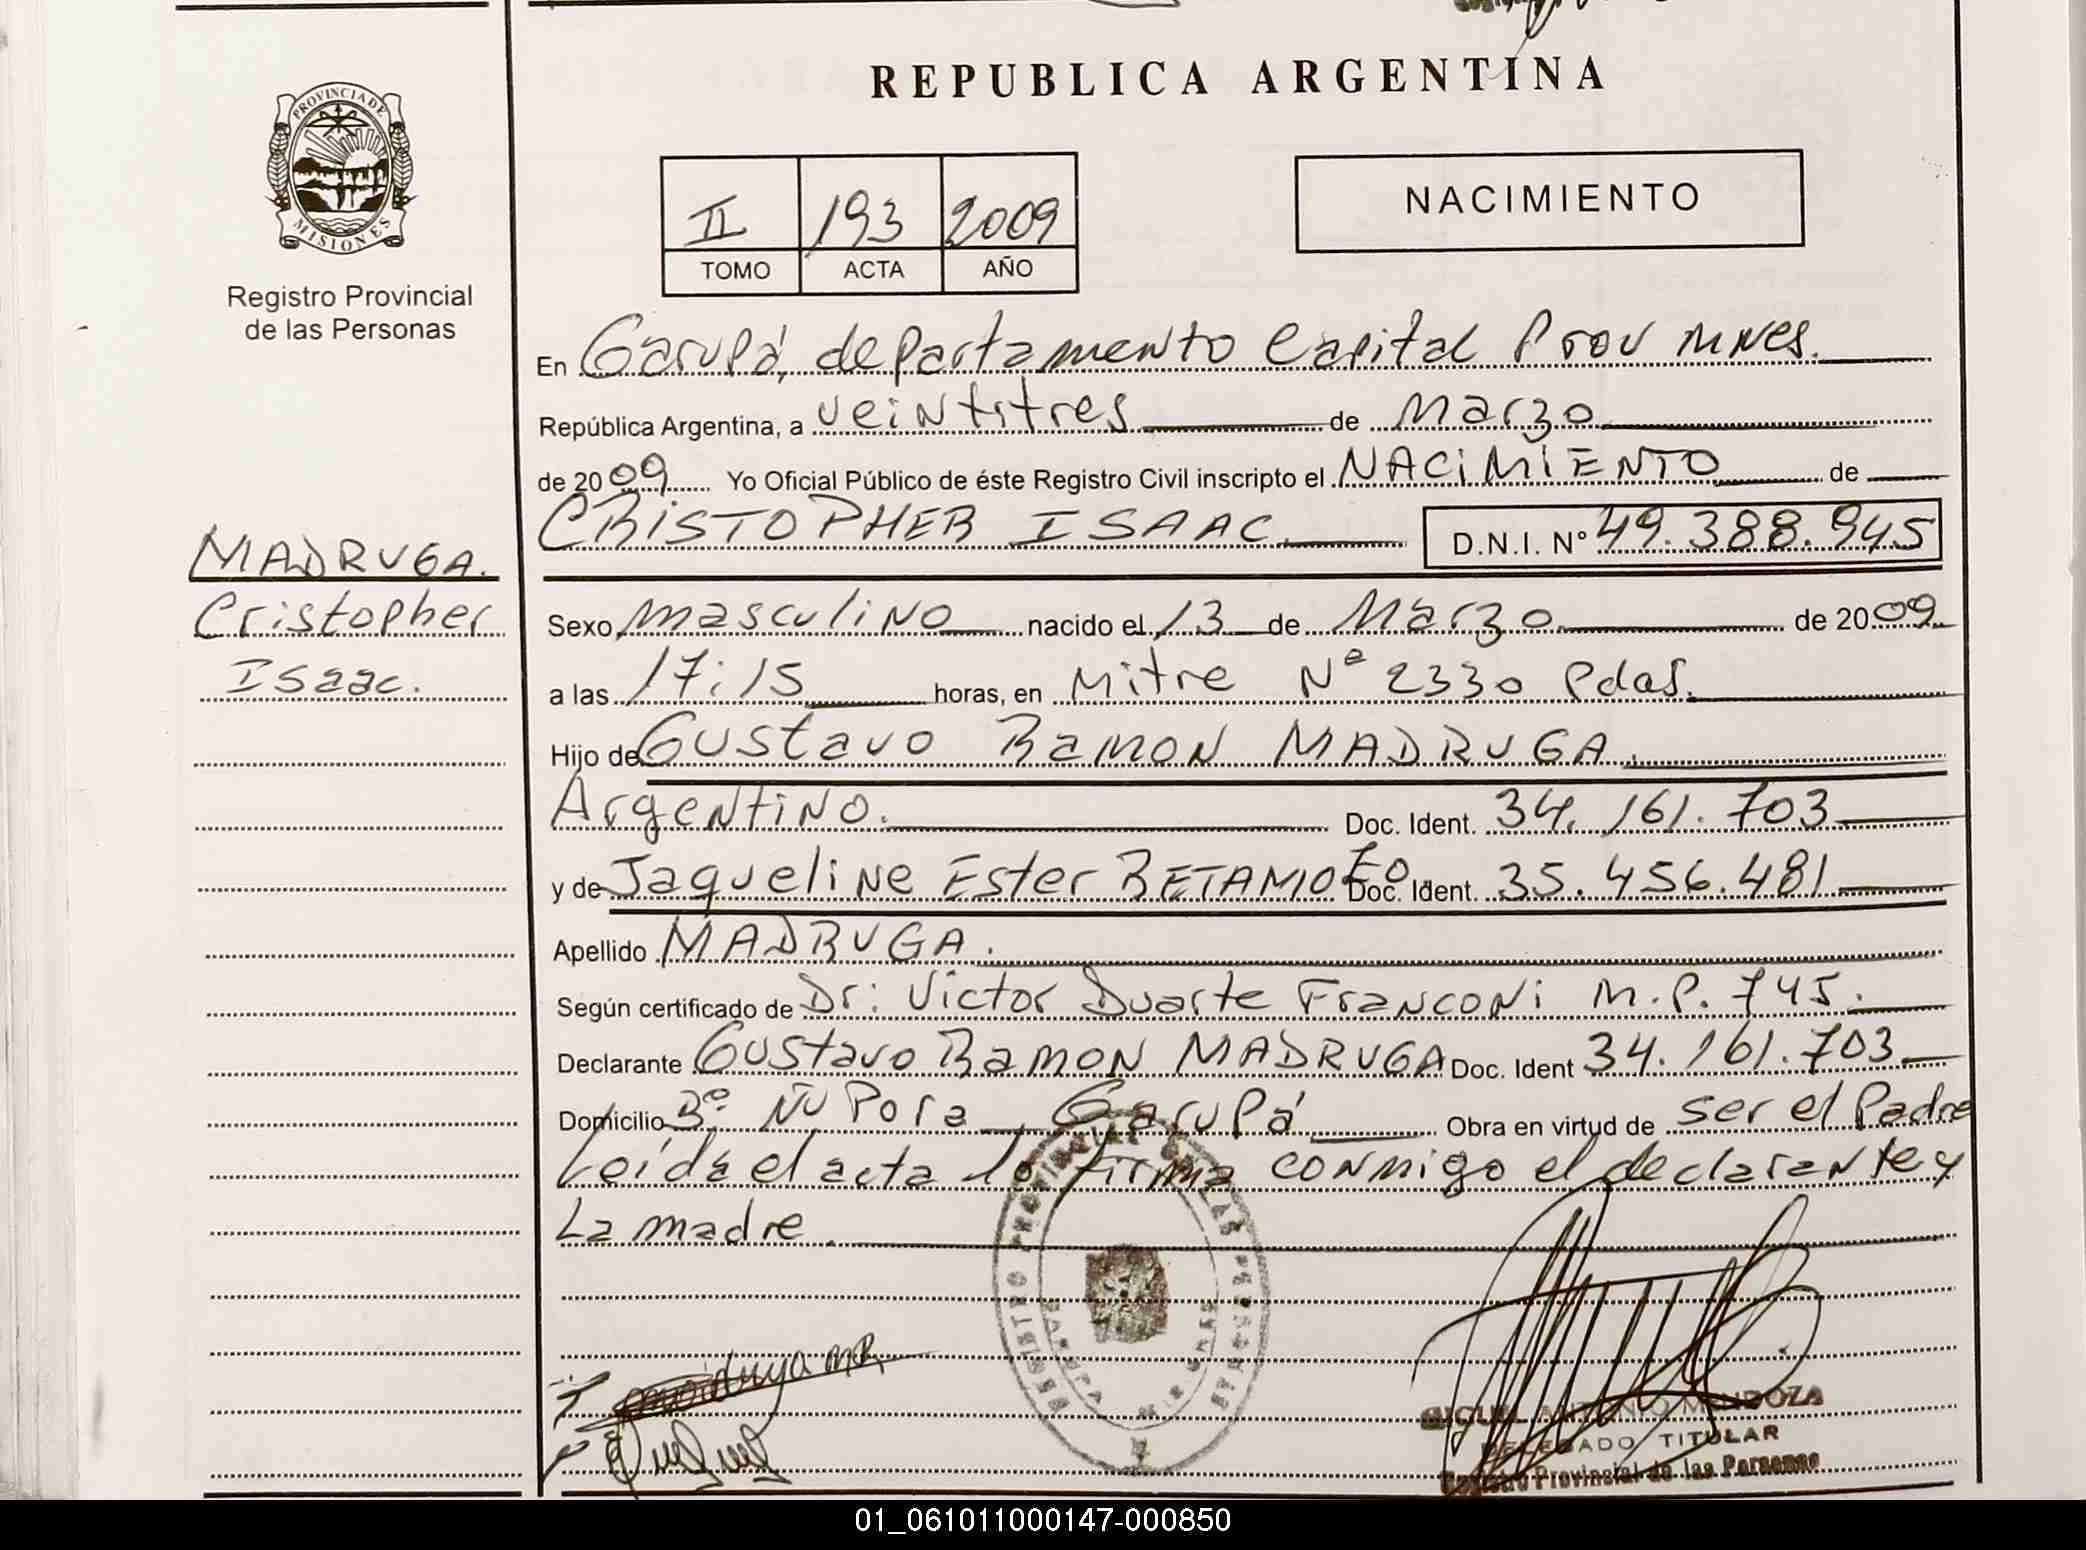 REPUBLICA ARGENTINA
PROVINCIA DE
MISIONES
Registro Provincial
de las Personas
II 193 2009
TOMO ACTA AÑO
NACIMIENTO
En Garupá, departamento Capital Prov mnes.
República Argentina, a veintitres de Marzo
de 2009 Yo Oficial Público de éste Registro Civil inscripto el NACIMIENTO de
CRISTOPHER ISAAC D.N.I. Nº 49.388.945
MADRUGA.
Cristopher
Isaac.
Sexo masculino nacido el 13 de Marzo de 2009
a las 17:15 horas, en Mitre Nº 2330 Pdas.
Hijo de Gustavo Ramon MADRUGA
Argentino. Doc. Ident. 34.161.703
y de Jaqueline Ester RETAMOZO Doc. Ident. 35.456.481
Apellido MADRUGA.
Según certificado de Dr: Victor Duarte Franconi M.P. 745.
Declarante Gustavo Ramon MADRUGA Doc. Ident 34.161.703
Domicilio Bº Ñu Pora Garupá Obra en virtud de ser el Padre
Leída el acta lo firma conmigo el declarante y
La madre.
REGISTRO PROVINCIAL DE LAS PERSONAS
MIGUEL ANTONIO MENDOZA
DELEGADO TITULAR
Registro Provincial de las Personas
01_061011000147-000850